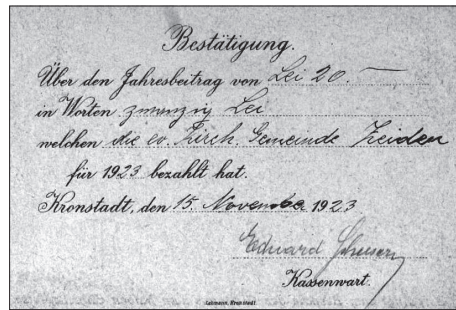 Bestätigung.
Über den Jahresbeitrag von Lei 20.—
in Worten zwanzig Lei
welchen die ev. Kirch. Gemeinde Zeiden
für 1923 bezahlt hat.
Kronstadt, den 15. November 1923
Eduard
Kassenwart.
Lehmann, Kronstadt.